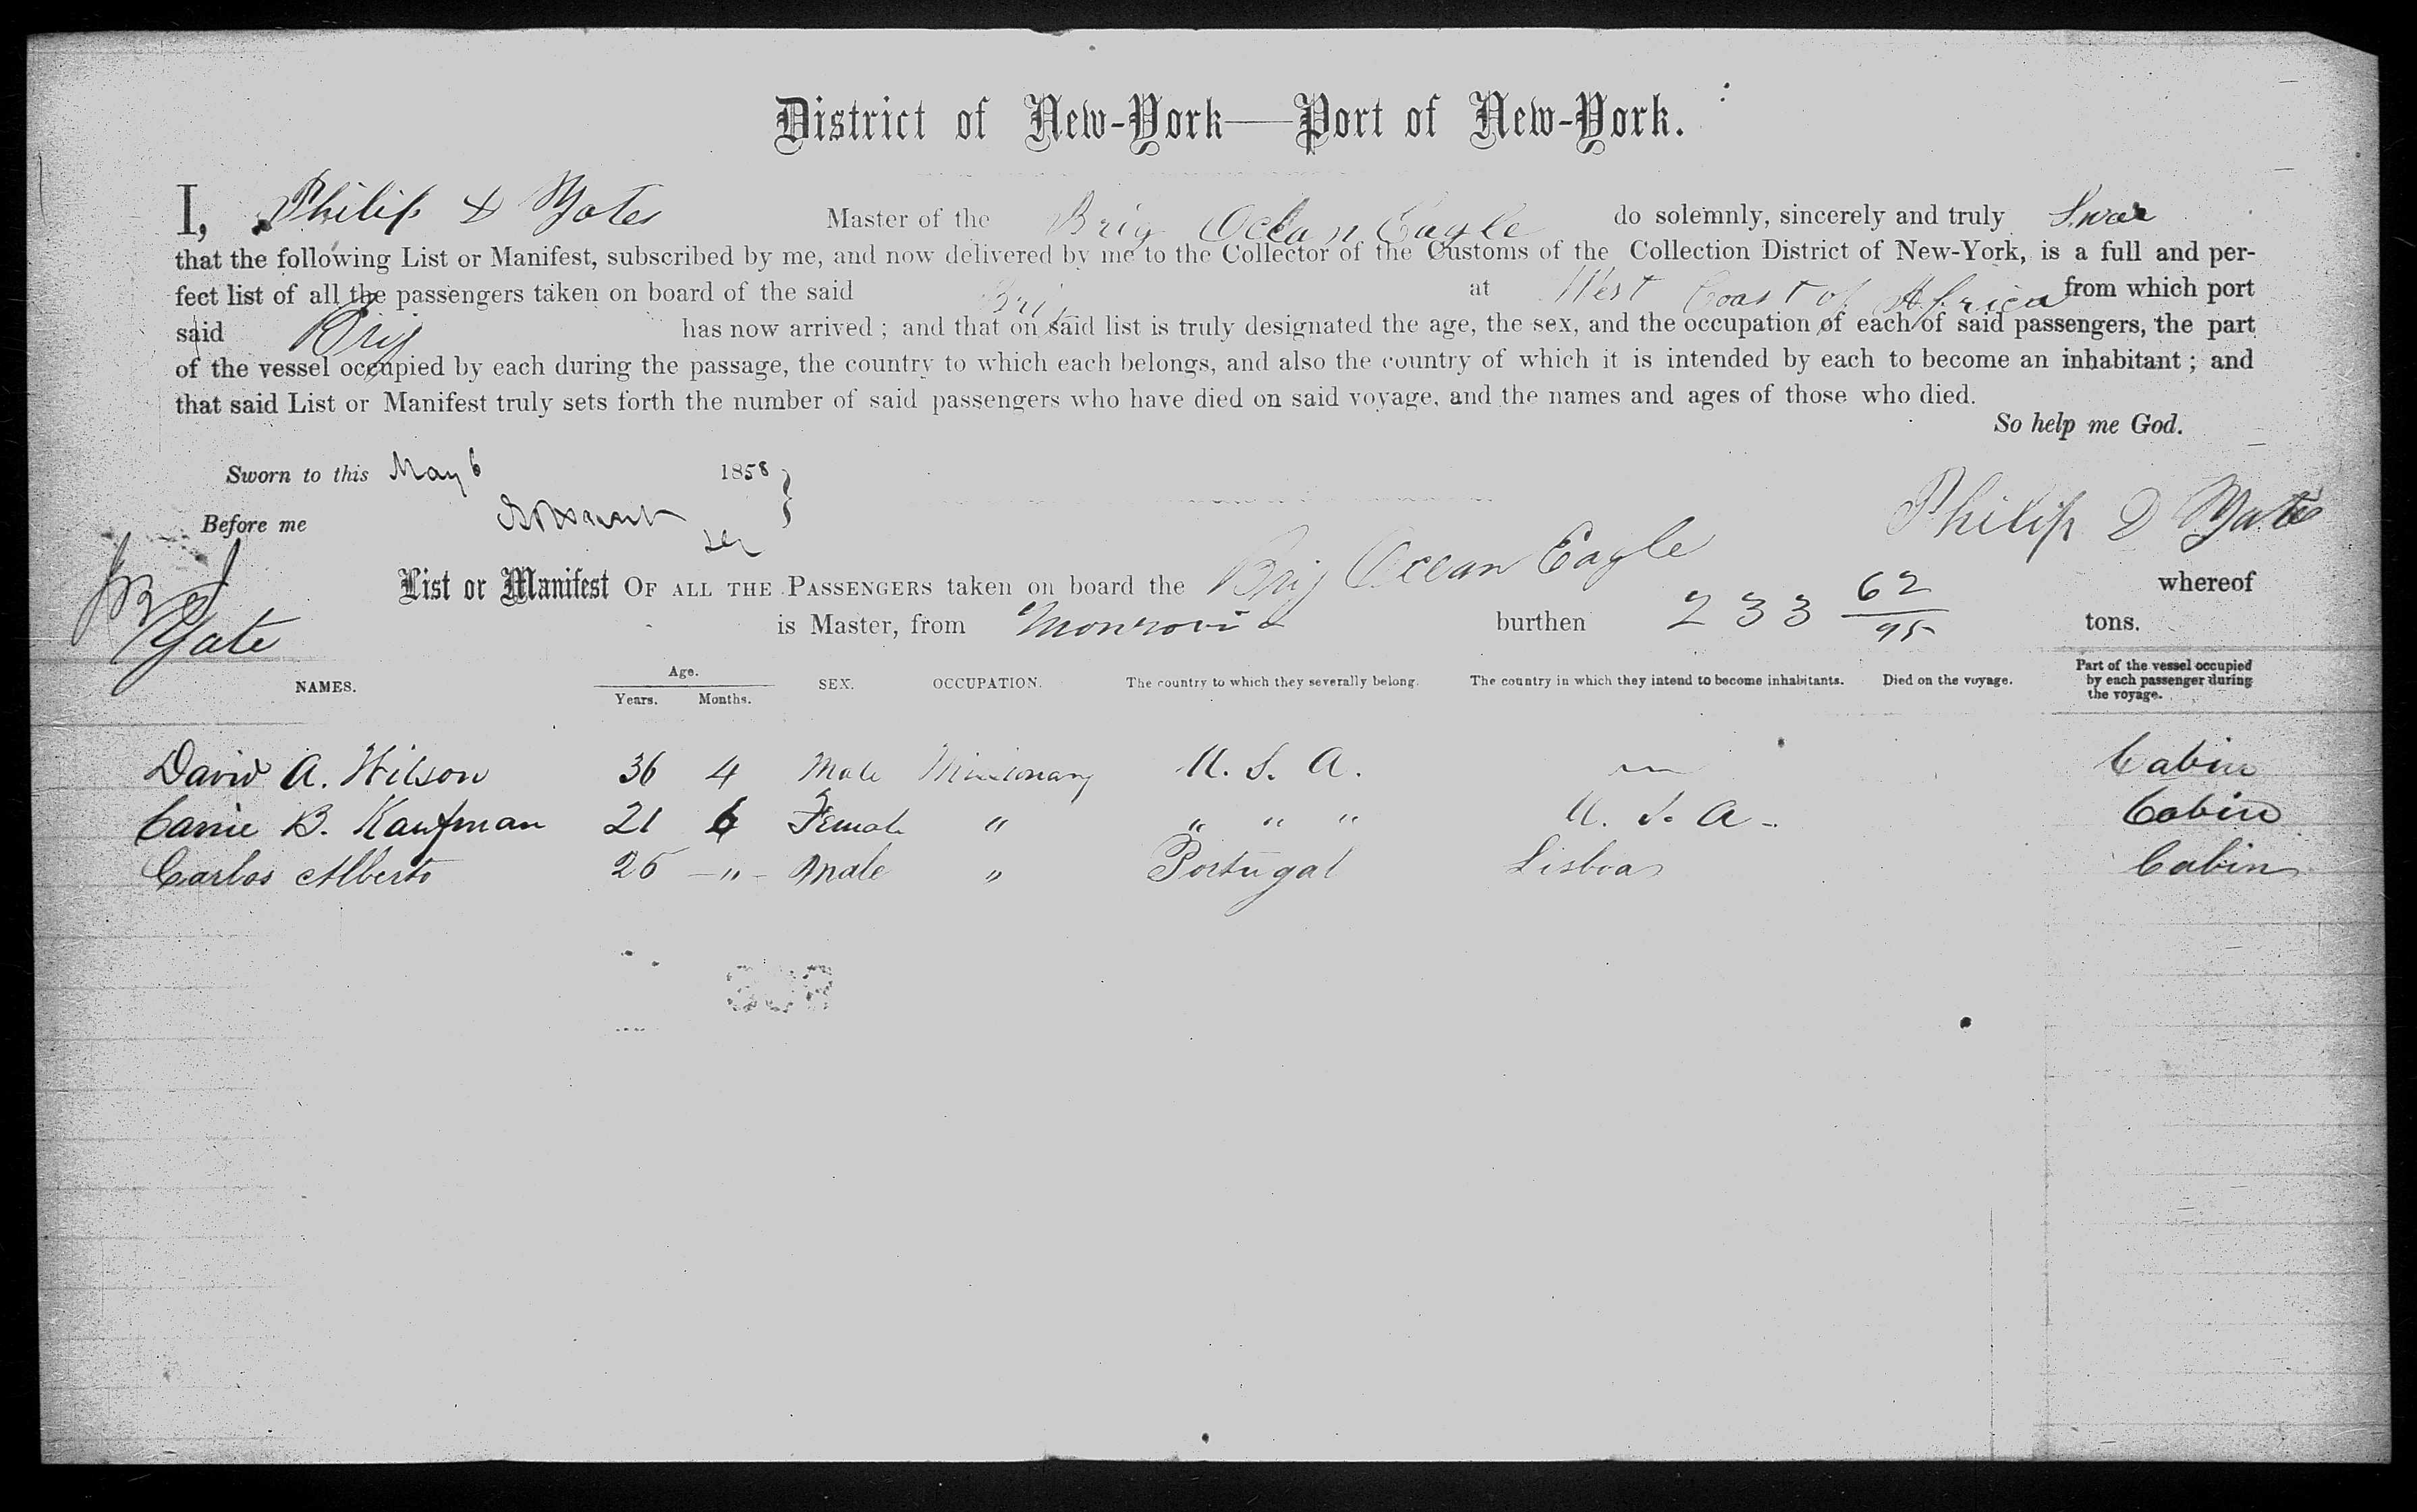 District of New-York—Port of New-York.
I, Philip D Yates Master of the Brig Ocean Eagle do solemnly, sincerely and truly Swear
that the following List or Manifest, subscribed by me, and now delivered by me to the Collector of the Customs of the Collection District of New-York, is a full and per-
fect list of all the passengers taken on board of the said Brig at West Coast of Africa from which port
said Brig has now arrived ; and that on said list is truly designated the age, the sex, and the occupation of each of said passengers, the part
of the vessel occupied by each during the passage, the country to which each belongs, and also the country of which it is intended by each to become an inhabitant ; and
that said List or Manifest truly sets forth the number of said passengers who have died on said voyage, and the names and ages of those who died.
So help me God.
Sworn to this May 6 1858
Before me
Philip D Yates
List or Manifest OF ALL THE PASSENGERS taken on board the Brig Ocean Eagle whereof
Yate is Master, from Monrovia burthen 233 62/95 tons.
NAMES. Age. Years. Months. SEX. OCCUPATION. The country to which they severally belong. The country in which they intend to become inhabitants. Died on the voyage. Part of the vessel occupied by each passenger during the voyage.
David A. Wilson 36 4 Male Missionary U. S. A. Cabin
Carrie B. Kaufman 21 6 Female " " " " U. S. A. Cabin
Carlos Alberto 26 —"— Male " Portugal Lisboa Cabin